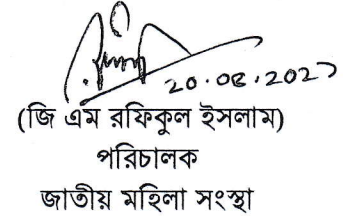 20.08.202
(জি এম রফিকুল ইসলাম)
পরিচালক
জাতীয় মহিলা সংস্থা